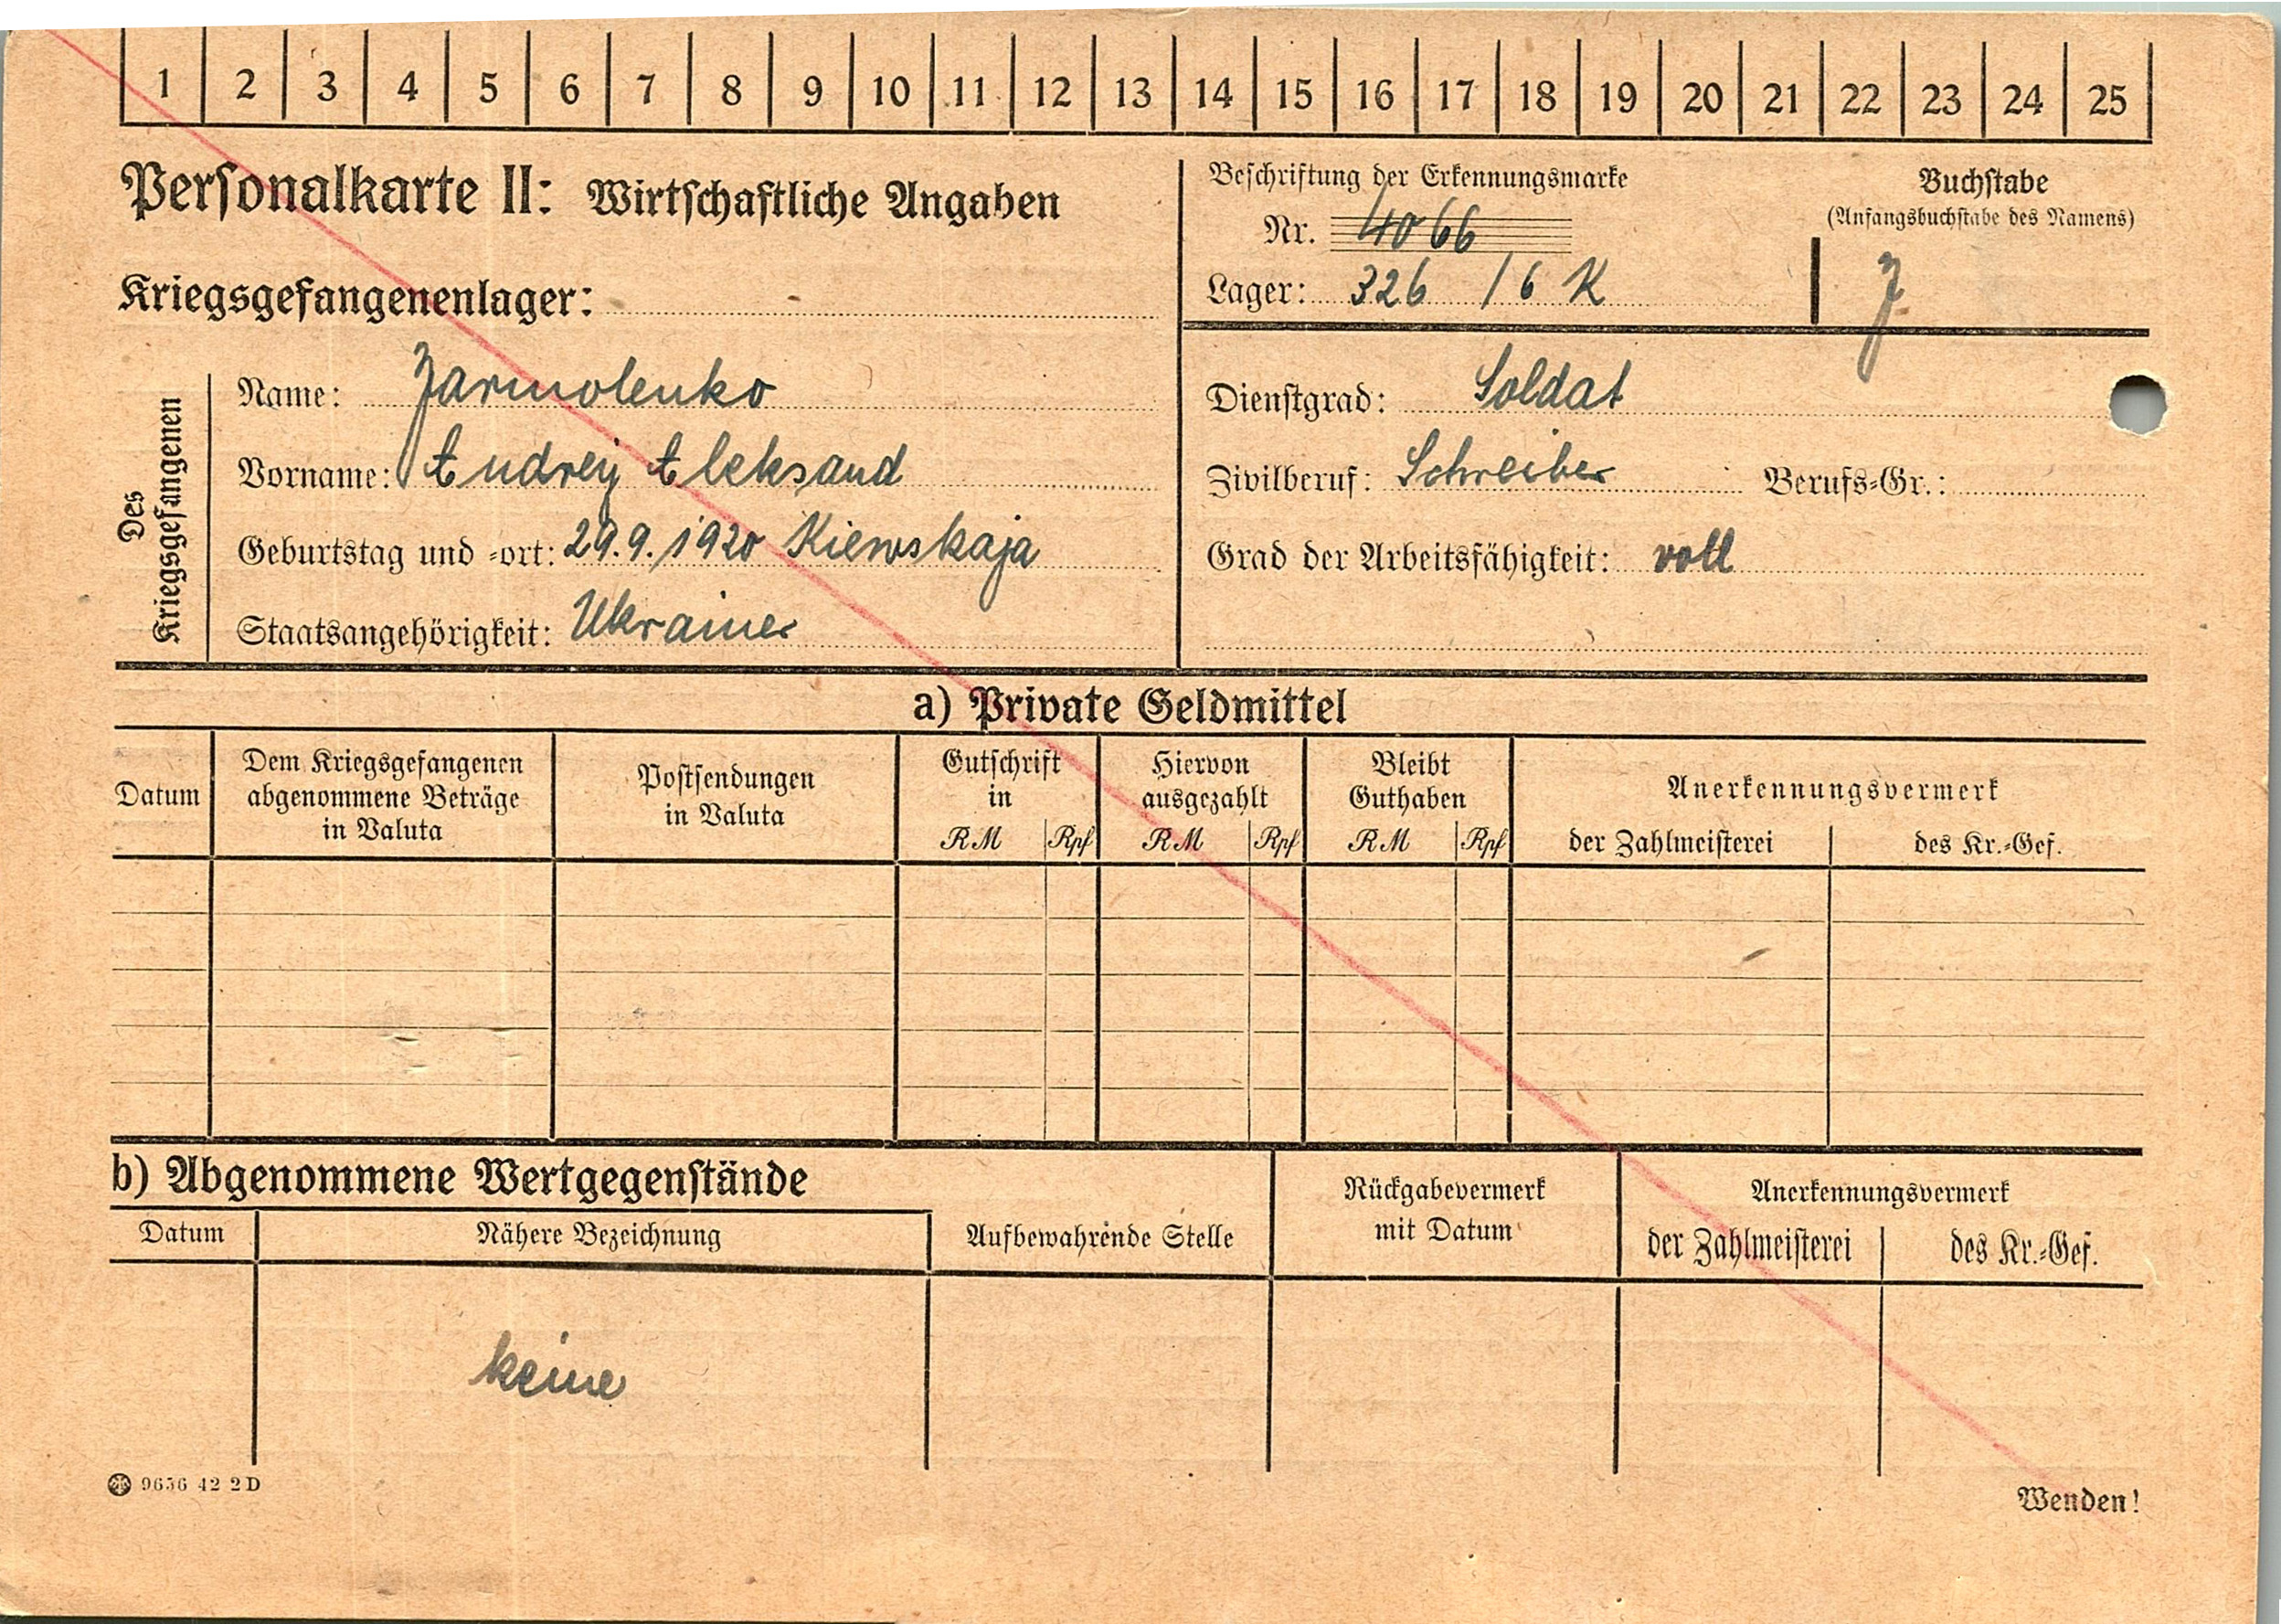 1 2 3 4 5 6 7 8 9 10 11 12 13 14 15 16 17 18 19 20 21 22 23 24 25
Personalkarte II: Wirtschaftliche Angaben
Beschriftung der Erkennungsmarke
Nr. 4066
Lager: 326 / 6 K
Buchstabe
(Anfangsbuchstabe des Namens)
J.
Kriegsgefangenenlager:
Des
Kriegsgefangenen
Name: Jarmolenko
Vorname: Andrej Aleksand
Geburtstag und -ort: 29.9.1920 Kiewskaja
Staatsangehörigkeit: Ukrainer
Dienstgrad: Soldat
Zivilberuf: Schreiber Berufs-Gr.:
Grad der Arbeitsfähigkeit: voll
a) Private Geldmittel
Datum
Dem Kriegsgefangenen
abgenommene Beträge
in Valuta
Postsendungen
in Valuta
Gutschrift
in
RM Rpf
Hiervon
ausgezahlt
RM Rpf
Bleibt
Guthaben
RM Rpf
Anerkennungsvermerk
der Zahlmeisterei des Kr.-Gef.
b) Abgenommene Wertgegenstände
Datum
Nähere Bezeichnung
Aufbewahrende Stelle
Rückgabevermerk
mit Datum
Anerkennungsvermerk
der Zahlmeisterei des Kr.-Gef.
keine
9656 42 2 D
Wenden!